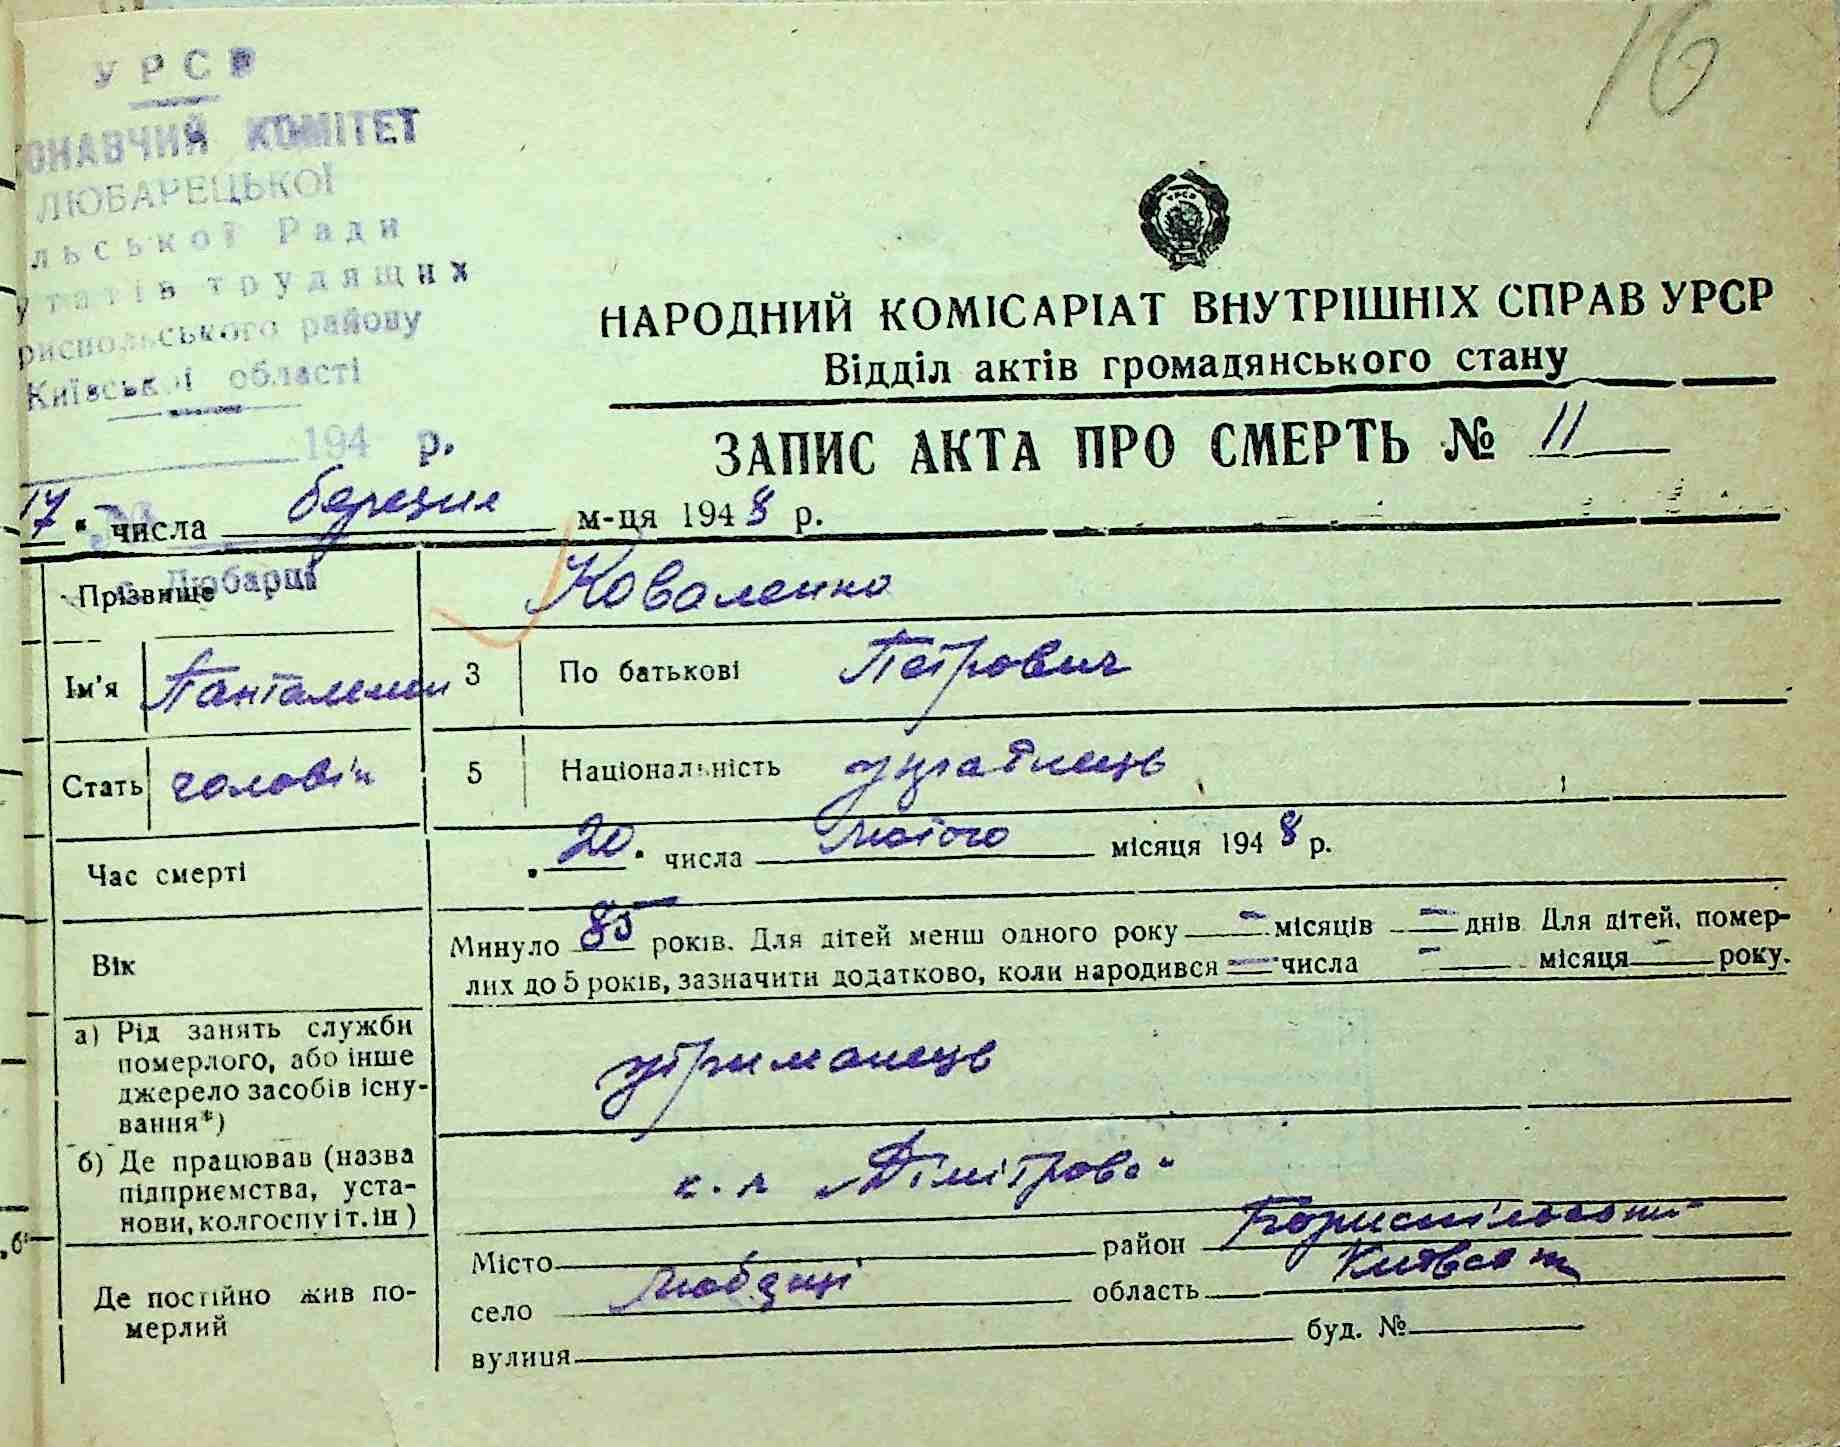 16
УРСР
ОНАВЧИЙ КОМІТЕТ
ЛЮБАРЕЦЬКОЇ
льської Ради
утатів трудящих
риспольського району
Київської області
194 р.
НАРОДНИЙ КОМІСАРІАТ ВНУТРІШНІХ СПРАВ УРСР
Відділ актів громадянського стану
ЗАПИС АКТА ПРО СМЕРТЬ № 11
17 " числа березня м-ця 1948 р.
с. Любарці
Прізвище Коваленко
Ім'я Панталемон 3 По батькові Петрович
Стать чоловік 5 Національність українець
Час смерті „20" числа лютого місяця 1948 р.
Вік Минуло 85 років. Для дітей менш одного року — місяців — днів Для дітей, помер-
лих до 5 років, зазначити додатково, коли народився — числа — місяця — року.
а) Рід занять служби
померлого, або інше
джерело засобів існу-
вання*)
утриманець
б) Де працював (назва
підприємства, уста-
нови, колгоспу і т. ін)
к. г. „Дімітрова"
Де постійно жив по-
мерлий
Місто район Бориспільський
село Любарці область Київська
вулиця буд. №